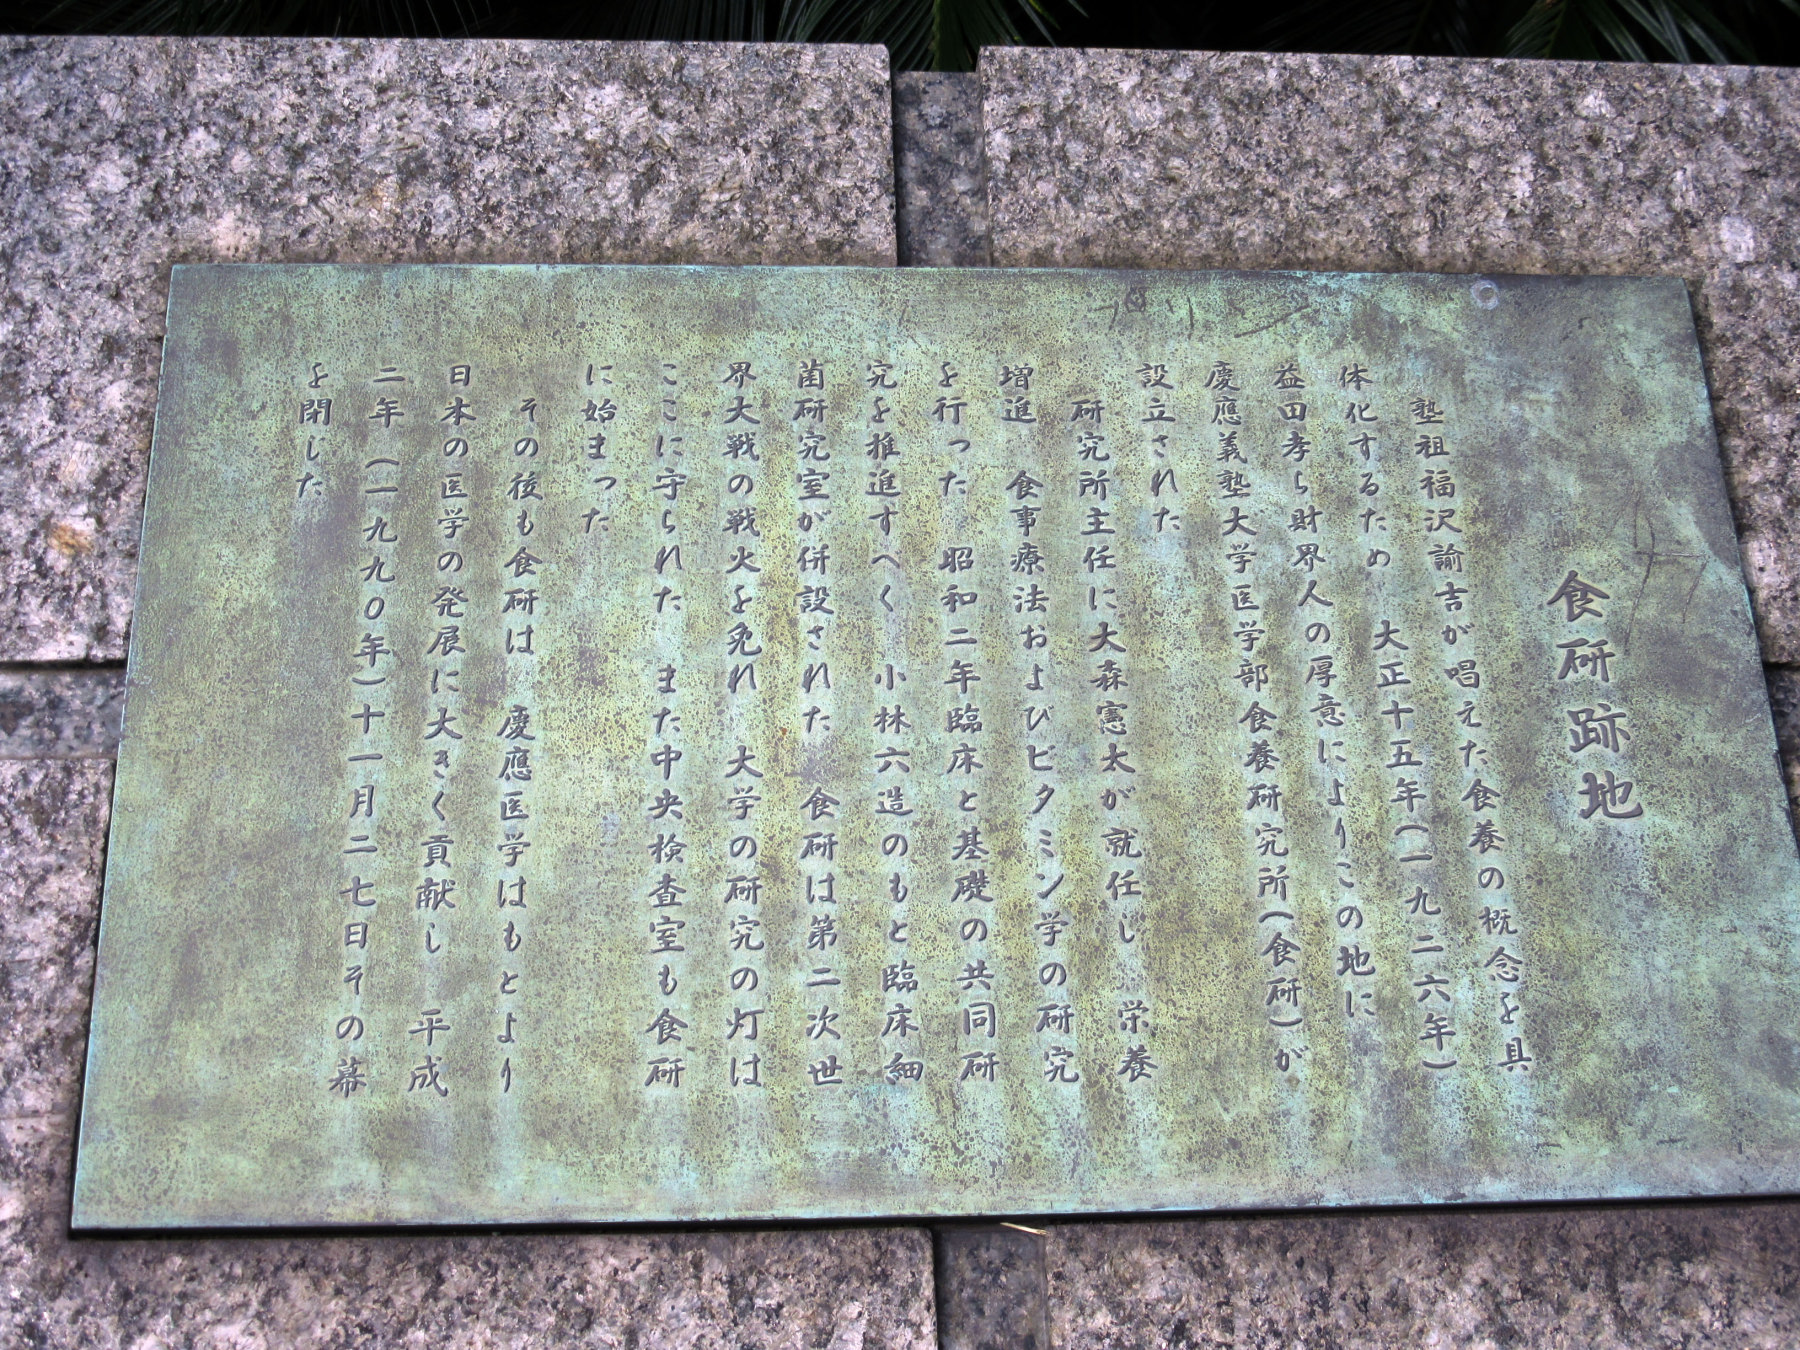 食研跡地
塾祖福沢諭吉が唱えた食養の概念を具
体化するため 大正十五年(一九二六年)
益田孝ら財界人の厚意によりこの地に
慶應義塾大学医学部食養研究所(食研)が
設立された
研究所主任に大森憲太が就任し 栄養
増進 食事療法およびビタミン学の研究
を行った 昭和二年臨床と基礎の共同研
究を推進すべく 小林六造のもと臨床細
菌研究室が併設された 食研は第二次世
界大戦の戦火を免れ 大学の研究の灯は
ここに守られた また中央検査室も食研
に始まった
その後も食研は 慶應医学はもとより
日本の医学の発展に大きく貢献し 平成
二年(一九九〇年)十一月二七日その幕
を閉じた